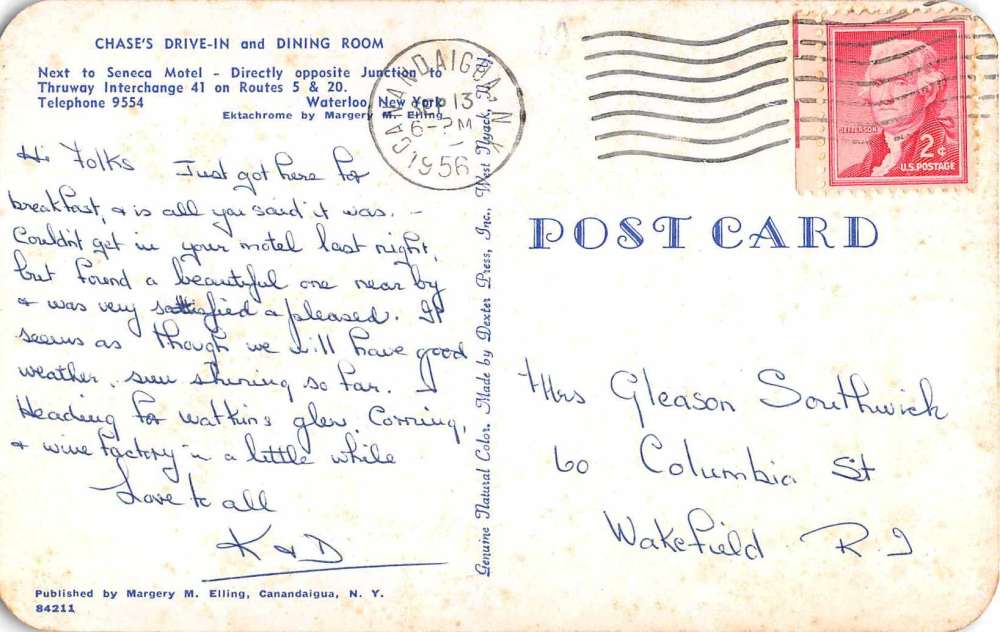 CHASE'S DRIVE-IN and DINING ROOM
Next to Seneca Motel - Directly opposite Junction to
Thruway Interchange 41 on Routes 5 & 20.
Telephone 9554 Waterloo, New York
Ektachrome by Margery M. Elling
Hi Folks Just got here for
breakfast, & is all you said it was. -
Couldn't get in your motel last night,
but found a beautiful one near by
& was very satisfied & pleased. It
seems as though we will have good
weather, sun shining so far.
Heading for Watkins Glen, Corning,
& wine factory in a little while
Love to all
K & D
Published by Margery M. Elling, Canandaigua, N. Y.
84211
Genuine Natural Color. Made by Dexter Press, Inc., West Nyack, N. Y.
CANANDAIGUA, N.Y.
SEP 13
6-PM
1956
JEFFERSON
2¢
U.S. POSTAGE
POST CARD
Mrs Gleason Southwick
60 Columbia St
Wakefield R I